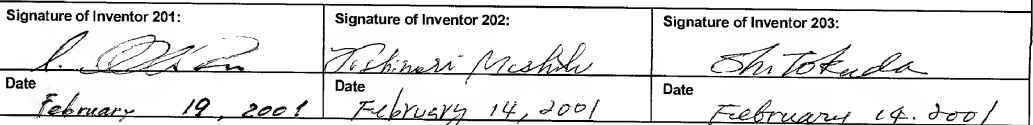 Signature of Inventor 201: Signature of Inventor 202: Signature of Inventor 203:
Yoshinari
Date Date Date
February 19, 2001 February 14, 2001 February 14. 2001